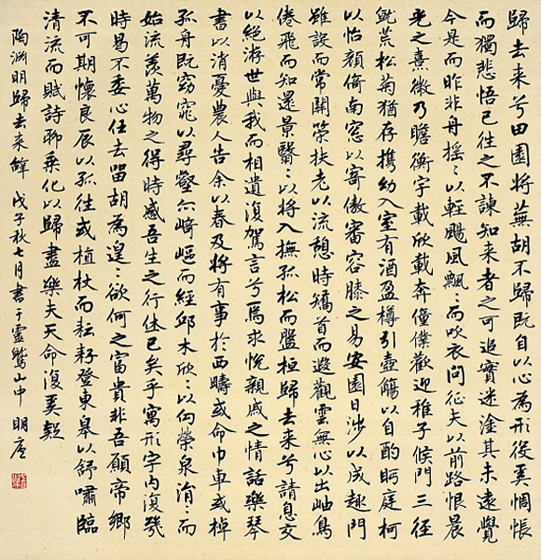 歸去来兮田園將蕪胡不歸既自以心為形役奚惆悵
而獨悲悟已往之不諫知来者之可追實迷塗其未遠覺
今是而昨非舟搖〻以輕颺風飄〻而吹衣問征夫以前路恨晨
光之熹微乃瞻衡宇載欣載奔僮僕歡迎稚子候門三徑
就荒松菊猶存攜幼入室有酒盈樽引壺觴以自酌眄庭柯
以怡顏倚南窓以寄傲審容膝之易安園日涉以成趣門
雖設而常關策扶老以流憩時矯首而遐觀雲無心以出岫鳥
倦飛而知還景翳〻以將入撫孤松而盤桓歸去来兮請息交
以絕游世與我而相遺復駕言兮焉求悅親戚之情話樂琴
書以消憂農人告余以春及將有事於西疇或命巾車或棹
孤舟既窈窕以尋壑亦崎嶇而經邱木欣〻以向榮泉涓〻而
始流羨萬物之得時感吾生之行休已矣乎寓形宇內復幾
時曷不委心任去留胡為遑〻欲何之富貴非吾願帝鄉
不可期懷良辰以孤往或植杖而耘耔登東皋以舒嘯臨
清流而賦詩聊乘化以歸盡樂夫天命復奚疑
陶淵明歸去来辭 戊子秋七月書于靈鷲山中 明